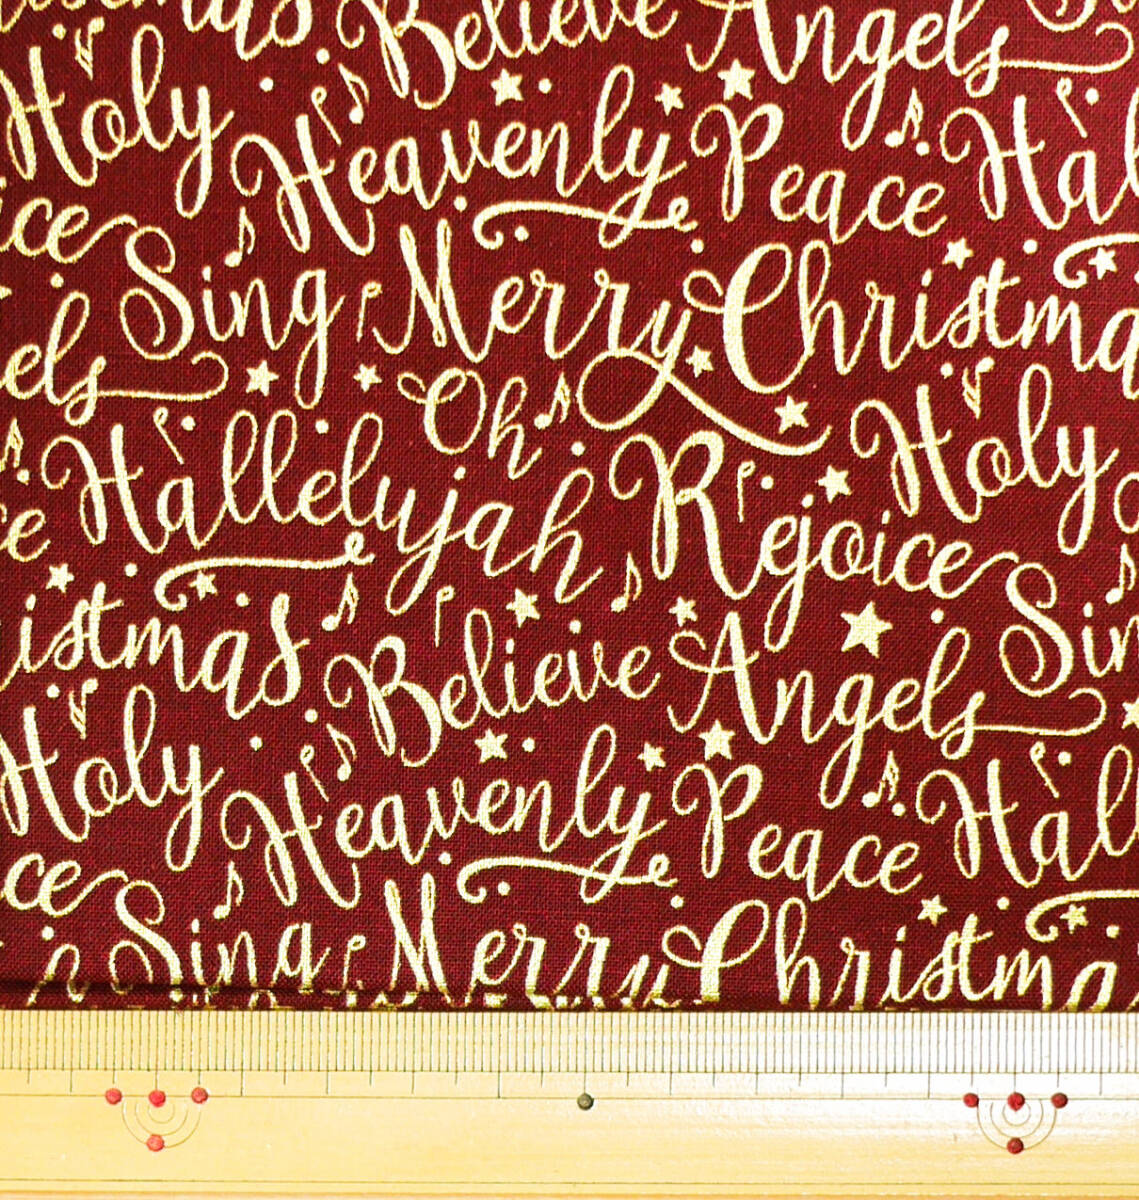 istmas Believe Angels
Holy Heavenly Peace Hal
ice Sing Merry Christma
els Oh Holy
Hallelujah Rejoice
ce istmas Believe Angels Sin
Holy Heavenly Peace Hal
ice Sing Merry Christma